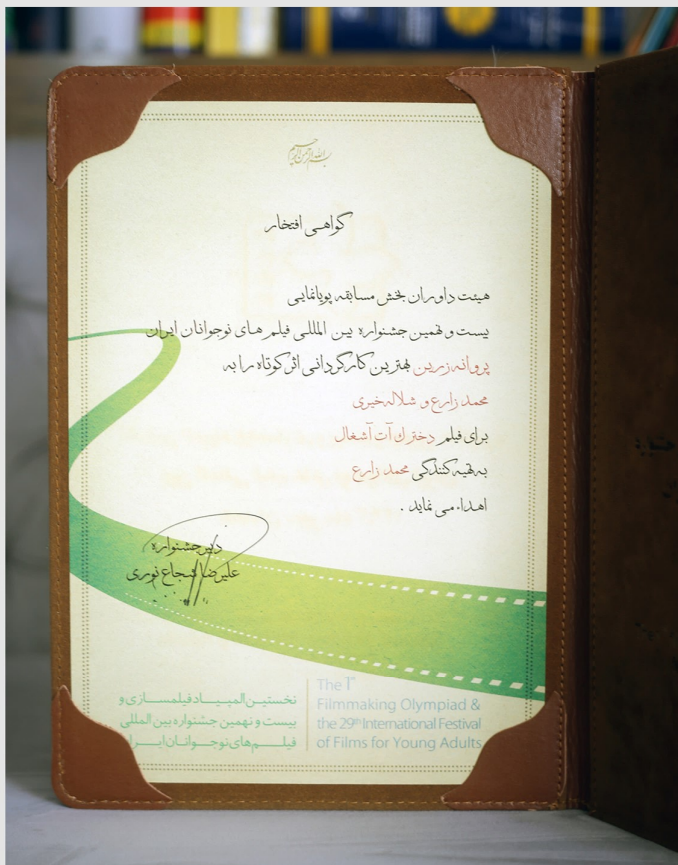 بسم الله الرحمن الرحیم
گواهی افتخار
هیئت داوران بخش مسابقه پویانمایی
بیست و نهمین جشنواره بین المللی فیلم های نوجوانان ایران
پروانه زرین بهترین کارگردانی اثر کوتاه را به
محمد زارع و شلاله خیری
برای فیلم دخترک آت آشغال
به تهیه کنندگی محمد زارع
اهداء می نماید .
دبیر جشنواره
علیرضا شجاع نوری
نخستین المپیاد فیلمسازی و
بیست و نهمین جشنواره بین المللی
فیلم های نوجوانان ایران
The 1st
Filmmaking Olympiad &
the 29th International Festival
of Films for Young Adults